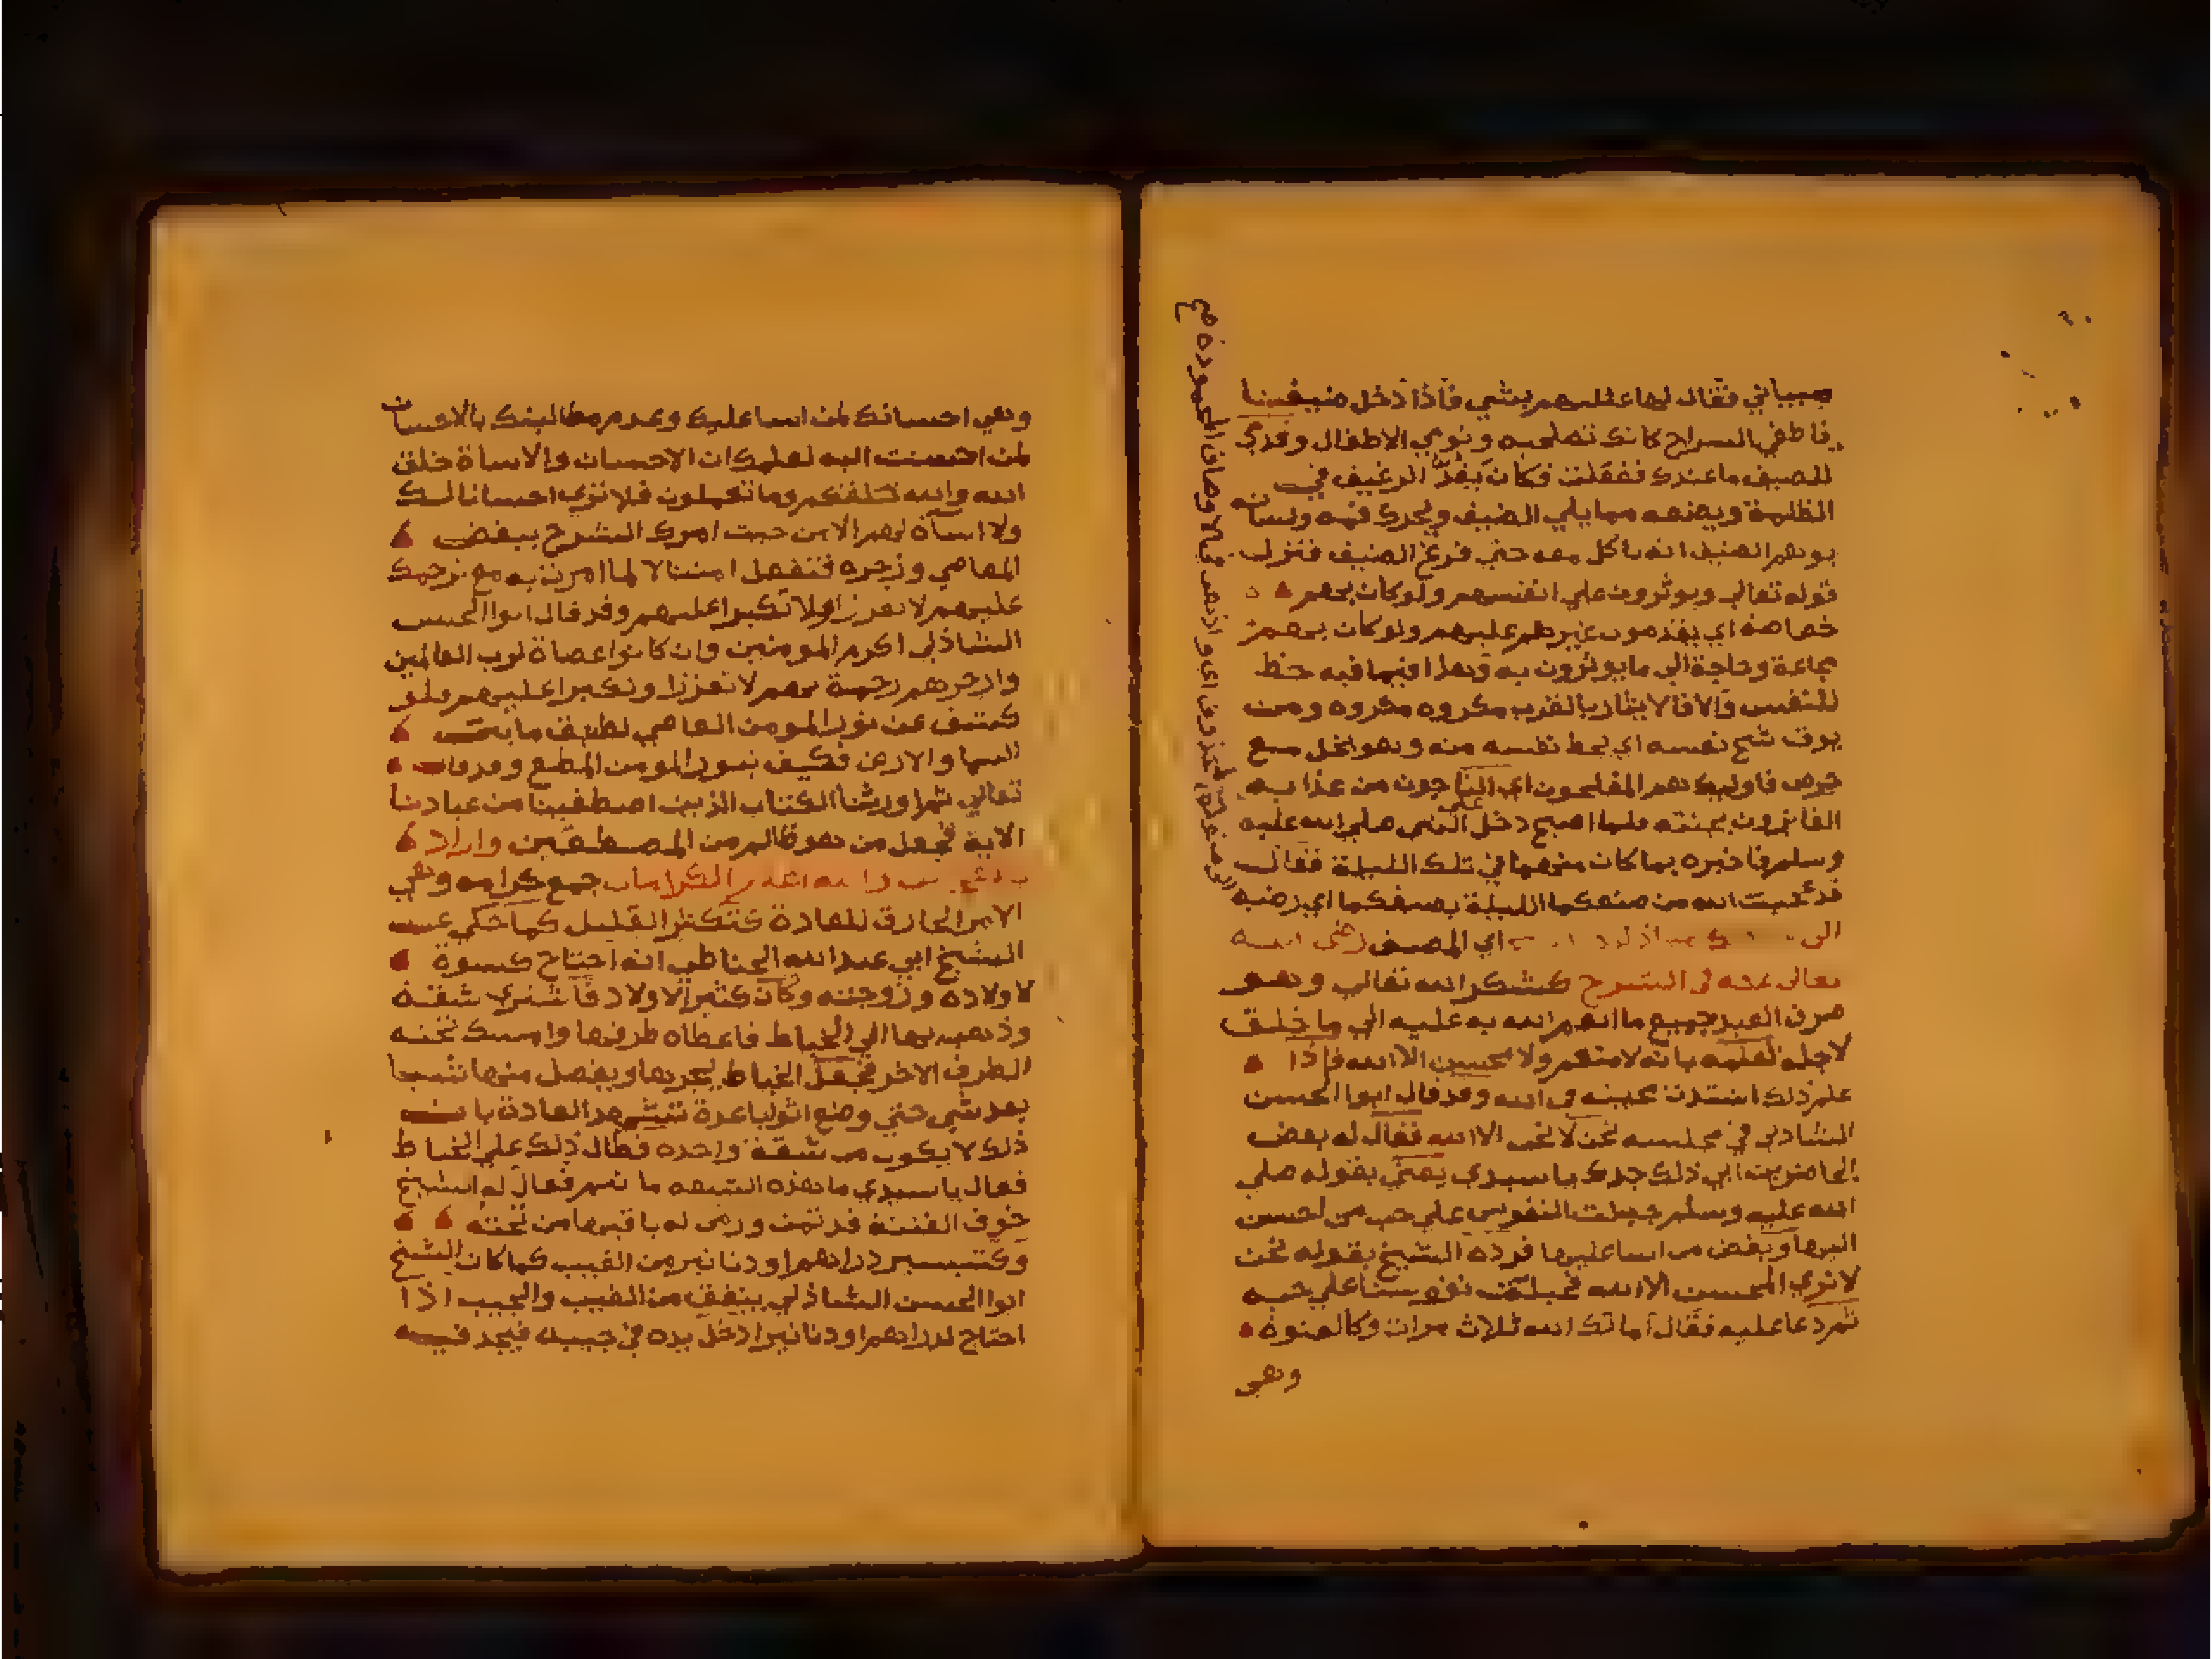 صبياني فقال لها علليهم بشي فاذا دخل ضيفنا
فاطفي السراج كانك تصلحيه ونومي الاطفال وقدمي
للضيف ما عندك ففعلت فكان يفت الرغيف في
الظلمة ويضعه مما يلي الضيف ويحرك فمه ولسانه
يوهم الضيف انه ياكل معه حتي فرغ الضيف فنزل
قوله تعالي ويوثرون علي انفسهم ولو كان بهم
خصاصة اي يقدمون غيرهم عليهم ولو كان بهم
مجاعة وحاجة الي ما يوثرون به وهذا فيما فيه حظ
للنفس والا فالايثار بالقرب مكروه ومن
يوق شح نفسه اي يحط نفسه منه وهو بخل مع
حرص فاوليك هم المفلحون اي الناجون من عذابه
الفائزون بجنته فلما اصبح دخل علي النبي صلي الله عليه
وسلم فاخبره بما كان منهما في تلك الليلة فقال
قد عجبت الله من صنعكما الليلة بضيفكما اي رضيه
اي المصنف رضى الله
تعالى عنه في الشرح كشكر الله تعالي وهو
صرف العبد جميع ما انعم الله به عليه الي ما خلق
لاجله لعلمه بانه لا منعم ولا محسن الا الله فاذا
علم ذلك اشتدت محبته في الله وقد قال ابوا الحسن
الشاذلي في مجلسه نحن لا نحب الا الله فقال له بعض
الحاضرين ابي ذلك جدك يا سيدي يعني بقوله صلي
الله عليه وسلم جبلت النفوس علي حب من احسن
اليها وبغض من اسا عليها فرده الشيخ بقوله نحن
لا نري المحسن الا الله فجبلت نفوسنا علي حبه
ثم دعا عليه فقال اماتك الله ثلاث مرات وكالفتوة
وهي
وهي احسانك لمن اسا عليك وعدم مطالبتك بالاحسان
لمن احسنت اليه لعلمك ان الاحسان والاساة خلق
الله والله خلقكم وما تعملون فلا تري احسانا لك
ولا اساة لهم الا من حيث امرك الشرع ببغض
المعاصي وزجره فتفعل امتثالا لما امرت به مع ترحمك
عليهم لا تعززا ولا تكبرا عليهم وقد قال ابوا الحسن
الشاذلي اكرم المومنين وان كانوا عصاة لرب العالمين
وازجرهم رحمة بهم لا تعززا وتكبرا عليهم فلو
كشف عن نور المومن العاصي لطبق ما بين
السما والارض فكيف بنور المومن المطيع وقد قال
تعالي ثم اورثنا الكتاب الذين اصطفينا من عبادنا
الاية فجعل من هو ظالم من المصطفين واراد
الكرامات جمع كرامة وهي
الامر الخارق للعادة كتكثر القليل كما حكي عن
الشيخ ابي عبد الله الحناطي انه احتاج كسوة
لاولاده وزوجته وكان كثير الاولاد فاشتري شقة
وذهب بها الي الخياط فاعطاه طرفها وامسك تحته
الطرف الاخر فجعل الخياط يجرها ويفصل منها شيا
بعد شي حتي وضع اثوابا عدة تشهد العادة بان
ذلك لا يكون من شقة واحدة فطال ذلك علي الخياط
فقال يا سيدي ما هذه الشقة ما تتم فقال له الشيخ
خوف الفتنة قد تمت ورمى له باقيها من تحته
وكتيسير دراهم او دنانير من الغيب كما كان الشيخ
ابوا الحسن الشاذلي ينفق من الغيب والجيب اذا
احتاج لدراهم او دنانير ادخل يده في جيبه فيجد فيه